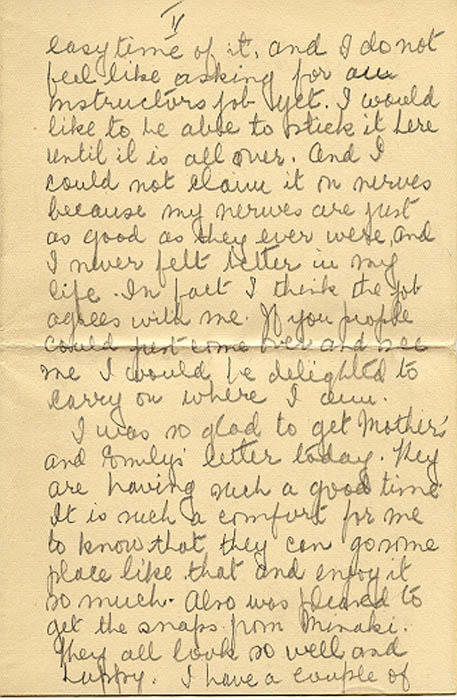 V
easy time of it, and I do not
feel like asking for an
instructors job yet. I would
like to be able to stick it here
until it is all over. And I
could not claim it on nerves
because my nerves are just
as good as they ever were and
I never felt better in my
life. In fact I think the job
agrees with me. If you people
could just come over and see
me I would be delighted to
carry on where I am.
I was so glad to get Mother's
and Emily's letter today. They
are having such a good time.
It is such a comfort for me
to know that they can go some
place like that and enjoy it
so much. Also was pleased to
get the snaps from Minaki.
They all look so well and
happy. I have a couple of